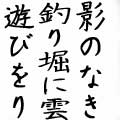 影のなき
釣り堀に雲
遊びをり